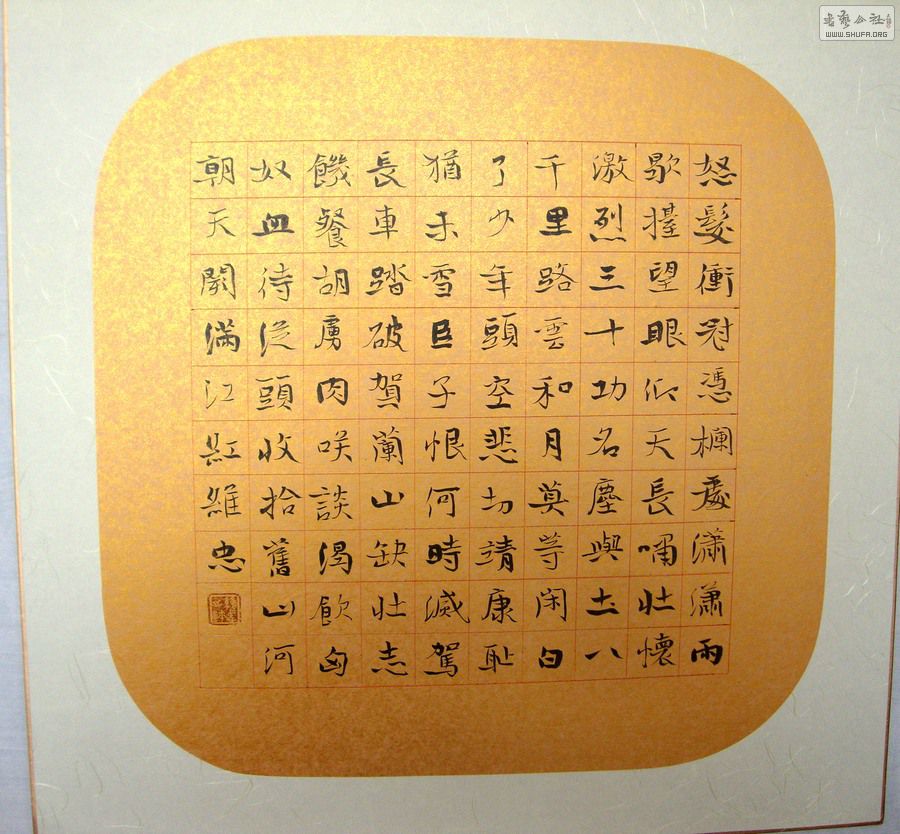 怒髮衝冠憑欄處瀟瀟雨
歇擡望眼仰天長嘯壯懷
激烈三十功名塵與土八
千里路雲和月莫等閑白
了少年頭空悲切靖康恥
猶未雪臣子恨何時滅駕
長車踏破賀蘭山缺壯志
饑餐胡虜肉咲談渴飲匈
奴血待從頭收拾舊山河
朝天闕滿江紅維忠
书艺公社
WWW.SHUFA.ORG